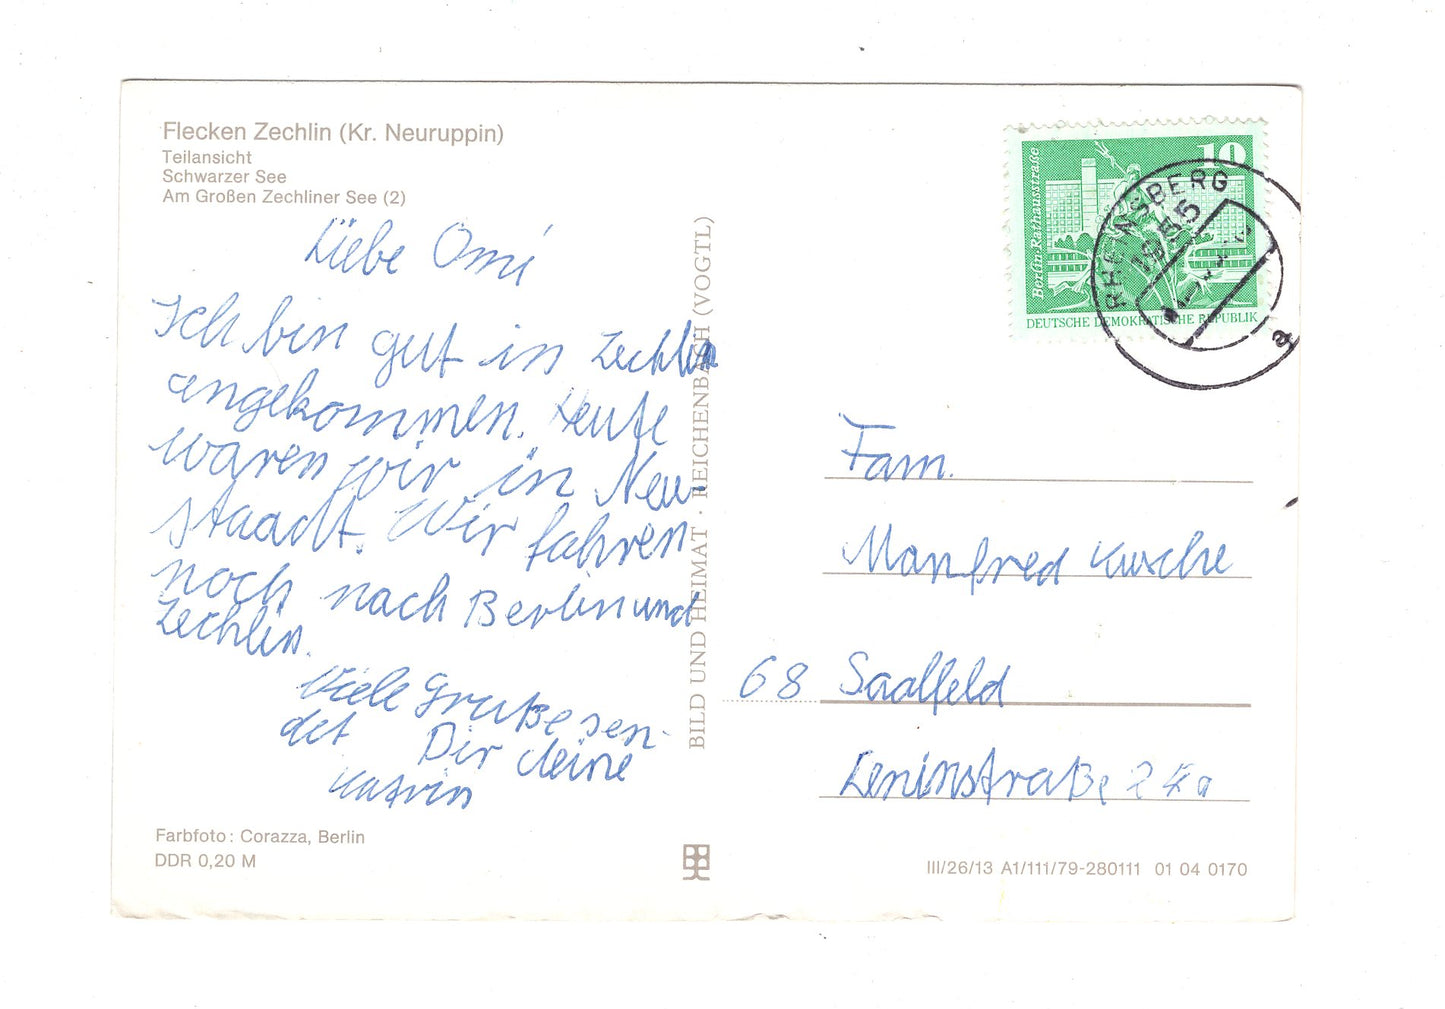 Flecken Zechlin (Kr. Neuruppin)
Teilansicht
Schwarzer See
Am Großen Zechliner See (2)
Liebe Omi
Ich bin gut in Zechlin
angekommen. Heute
waren wir in Neu-
staadt. Wir fahren
noch nach Berlin und
Zechlin.
Viele Grüße sen-
det Dir deine
Katrin
Farbfoto: Corazza, Berlin
DDR 0,20 M
BILD UND HEIMAT · REICHENBACH (VOGTL)
10
Berlin Rathausstraße
DEUTSCHE DEMOKRATISCHE REPUBLIK
RHEINSBERG
1955
a
Fam.
Manfred Kusche
68 Saalfeld
Leninstraße
III/26/13 A1/111/79-280111 01 04 0170